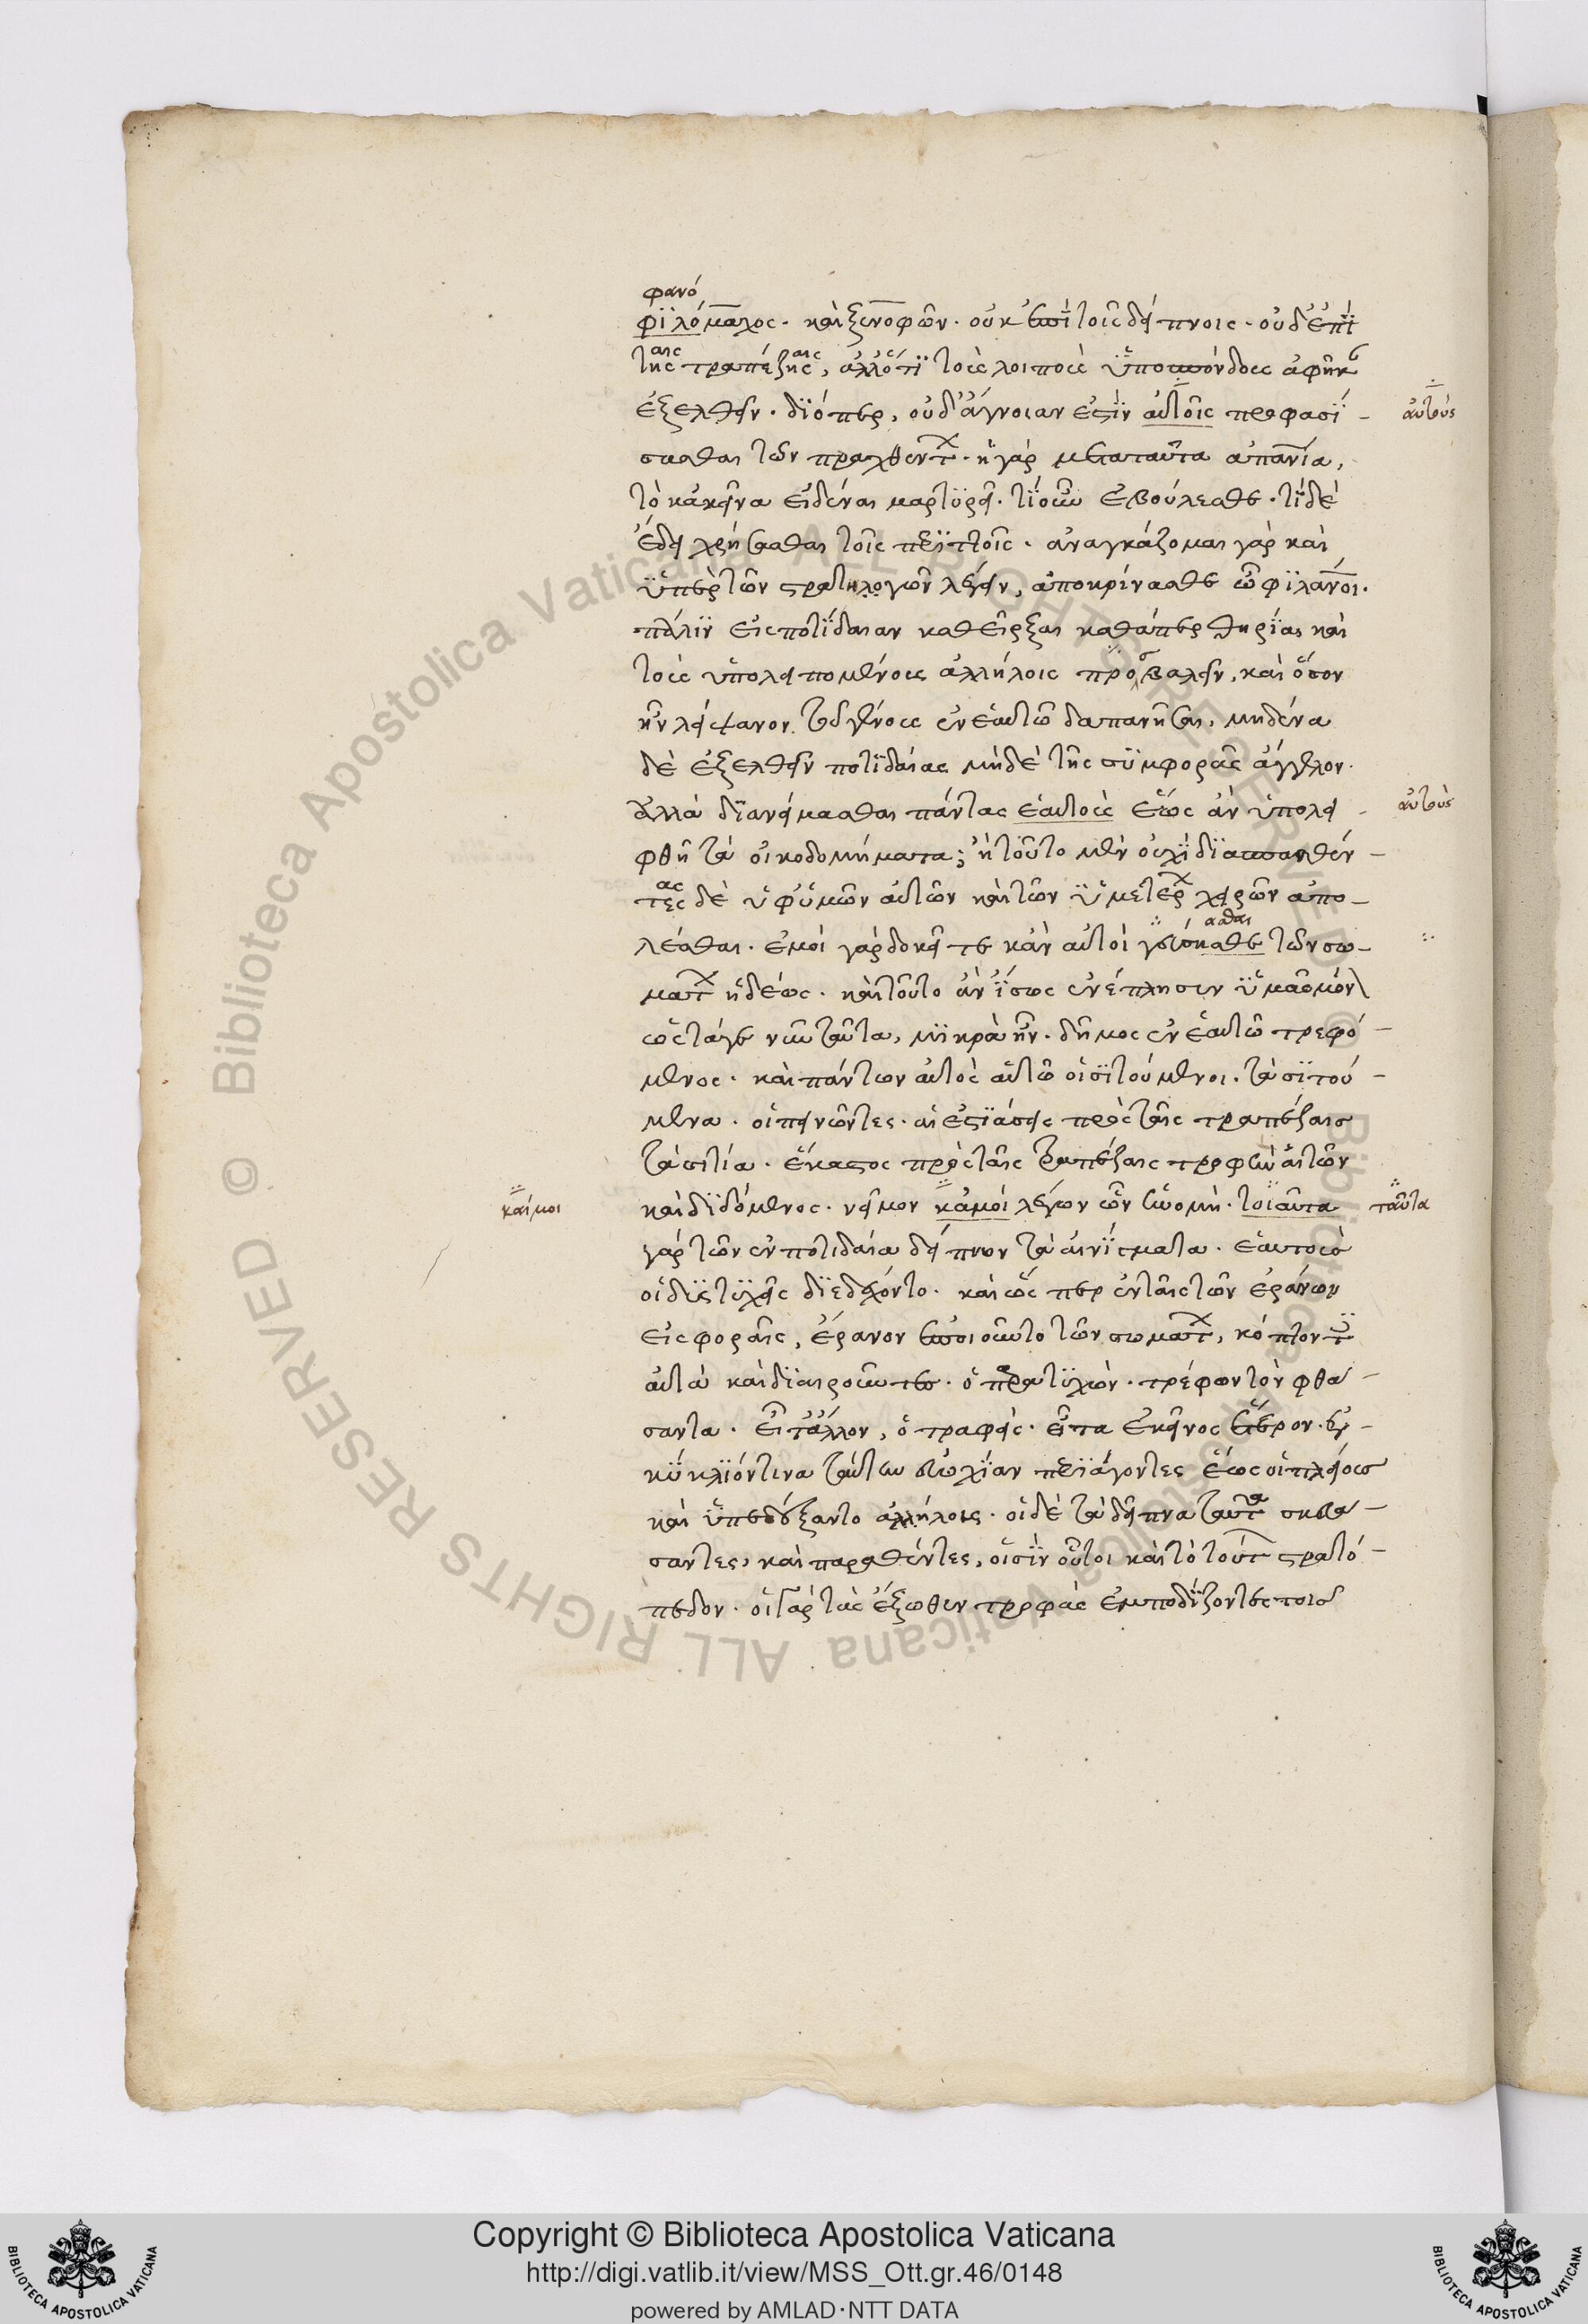 φανό
φϊλόμαχος· καὶ ξενοφῶν· οὐκ ἐπὶ τοῖς δείπνοις· οὐδ' ἐπὶ
ταῖς τραπέζαις, ἀλλ' ὅτι τοὺς λοιποὺς ὑποσπόνδους ἀφῆκε
ἐξελθεῖν· διόπερ, οὐδ' ἄγνοιαν ἐστὶν αὐτοῖς προφασί-
αὐτοὺς
σασθαι τῶν πραχθέντων· ἡ γὰρ μετὰ ταῦτα ἀπανία,
τὸ κἀκεῖνα εἰδέναι μαρτυρεῖ· τί οὖν ἐβούλεσθε· τί δὲ
ἔδει χρήσασθαι τοῖς περιττοῖς· ἀναγκάζομαι γὰρ καὶ
ὑπὲρ τῶν στρατηλογῶν λέγειν, ἀποκρίνασθε ὦ φιλάνοι·
πάλιν εἰς ποτίδαιαν καθεῖρξαι καθάπερ θηρία καὶ
τοὺς ὑπολειπομένους ἀλλήλοις προσβαλεῖν, καὶ ὅσον
ἦν λείψανον τοῦ γένους ἐν ἑαυτῷ δαπανῆσαι, μηδένα
δὲ ἐξελθεῖν ποτιδαίας μηδὲ τῆς συμφορᾶς ἄγγελον·
ἀλλὰ διανείμασθαι πάντας ἑαυτοὺς ἕως ἂν ὑπολει-
αὐτοὺς
φθῇ τὰ οἰκοδομήματα; ἢ τοῦτο μὲν οὐχὶ διασπασθέν-
τας δὲ ὑφ' ὑμῶν αὐτῶν καὶ τῶν ὑμετέρων χειρῶν ἀπο-
λέσθαι· ἐμοὶ γὰρ δοκεῖτε κἂν αὐτοὶ γεύσασθαι τῶν σω-
μάτων ἡδέως· καὶ τοῦτο ἂν ἴσως ἐνέπλησεν ὑμᾶς μόνον
ὥς τά γε νῦν ταῦτα, μικρὰ ἦν· δῆμος ἐν ἑαυτῷ τρεφό-
μενος· καὶ πάντων αὐτὸς αὑτῷ οἱ σιτούμενοι· τὰ σιτού-
μενα· οἱ πεινῶντες· αἱ ἑστιάσεις πρὸς ταῖς τραπέζαις
τὰ σιτία· ἕκαστος πρὸς ταῖς τραπέζαις τροφὴν αἰτῶν
καὶ διδόμενος· νεῖμον κἀμοὶ λέγων ὧν ἑωσμή· τοιαῦτα
καί μοι
ταῦτα
γὰρ τῶν ἐν ποτιδαία δείπνων τὰ αἰνίγματα· ἑαυτοὺς
οἱ δυστυχεῖς διεδέχοντο· καὶ ὥσπερ ἐν ταῖς τῶν ἐράνων
εἰσφοραῖς, ἔρανον ἐποιοῦντο τῶν σωμάτων, κόπτοντες
αὐτὰ καὶ διαιροῦντες· ὁ παρατυχὼν· τρέφων τὸν φθά-
σαντα· εἶτ' ἄλλον, ὁ τραφείς· εἶτα ἐκεῖνος ἕτερον· ἐγ-
κύκλιόν τινα ταύτην εὐωχίαν περιάγοντες ἕως οἱ πλείους
καὶ ὑπεδέξαντο ἀλλήλοις· οἱ δὲ τὰ δεῖπνα ταῦτα σκευά-
σαντες, καὶ παραθέντες, εἰσὶν οὗτοι καὶ τὸ τούτων στρατό-
πεδον· οἱ γὰρ τὰς ἔξωθεν τροφὰς ἐμποδίζοντες τοῖς
Copyright © Biblioteca Apostolica Vaticana
http://digi.vatlib.it/view/MSS_Ott.gr.46/0148
powered by AMLAD·NTT DATA